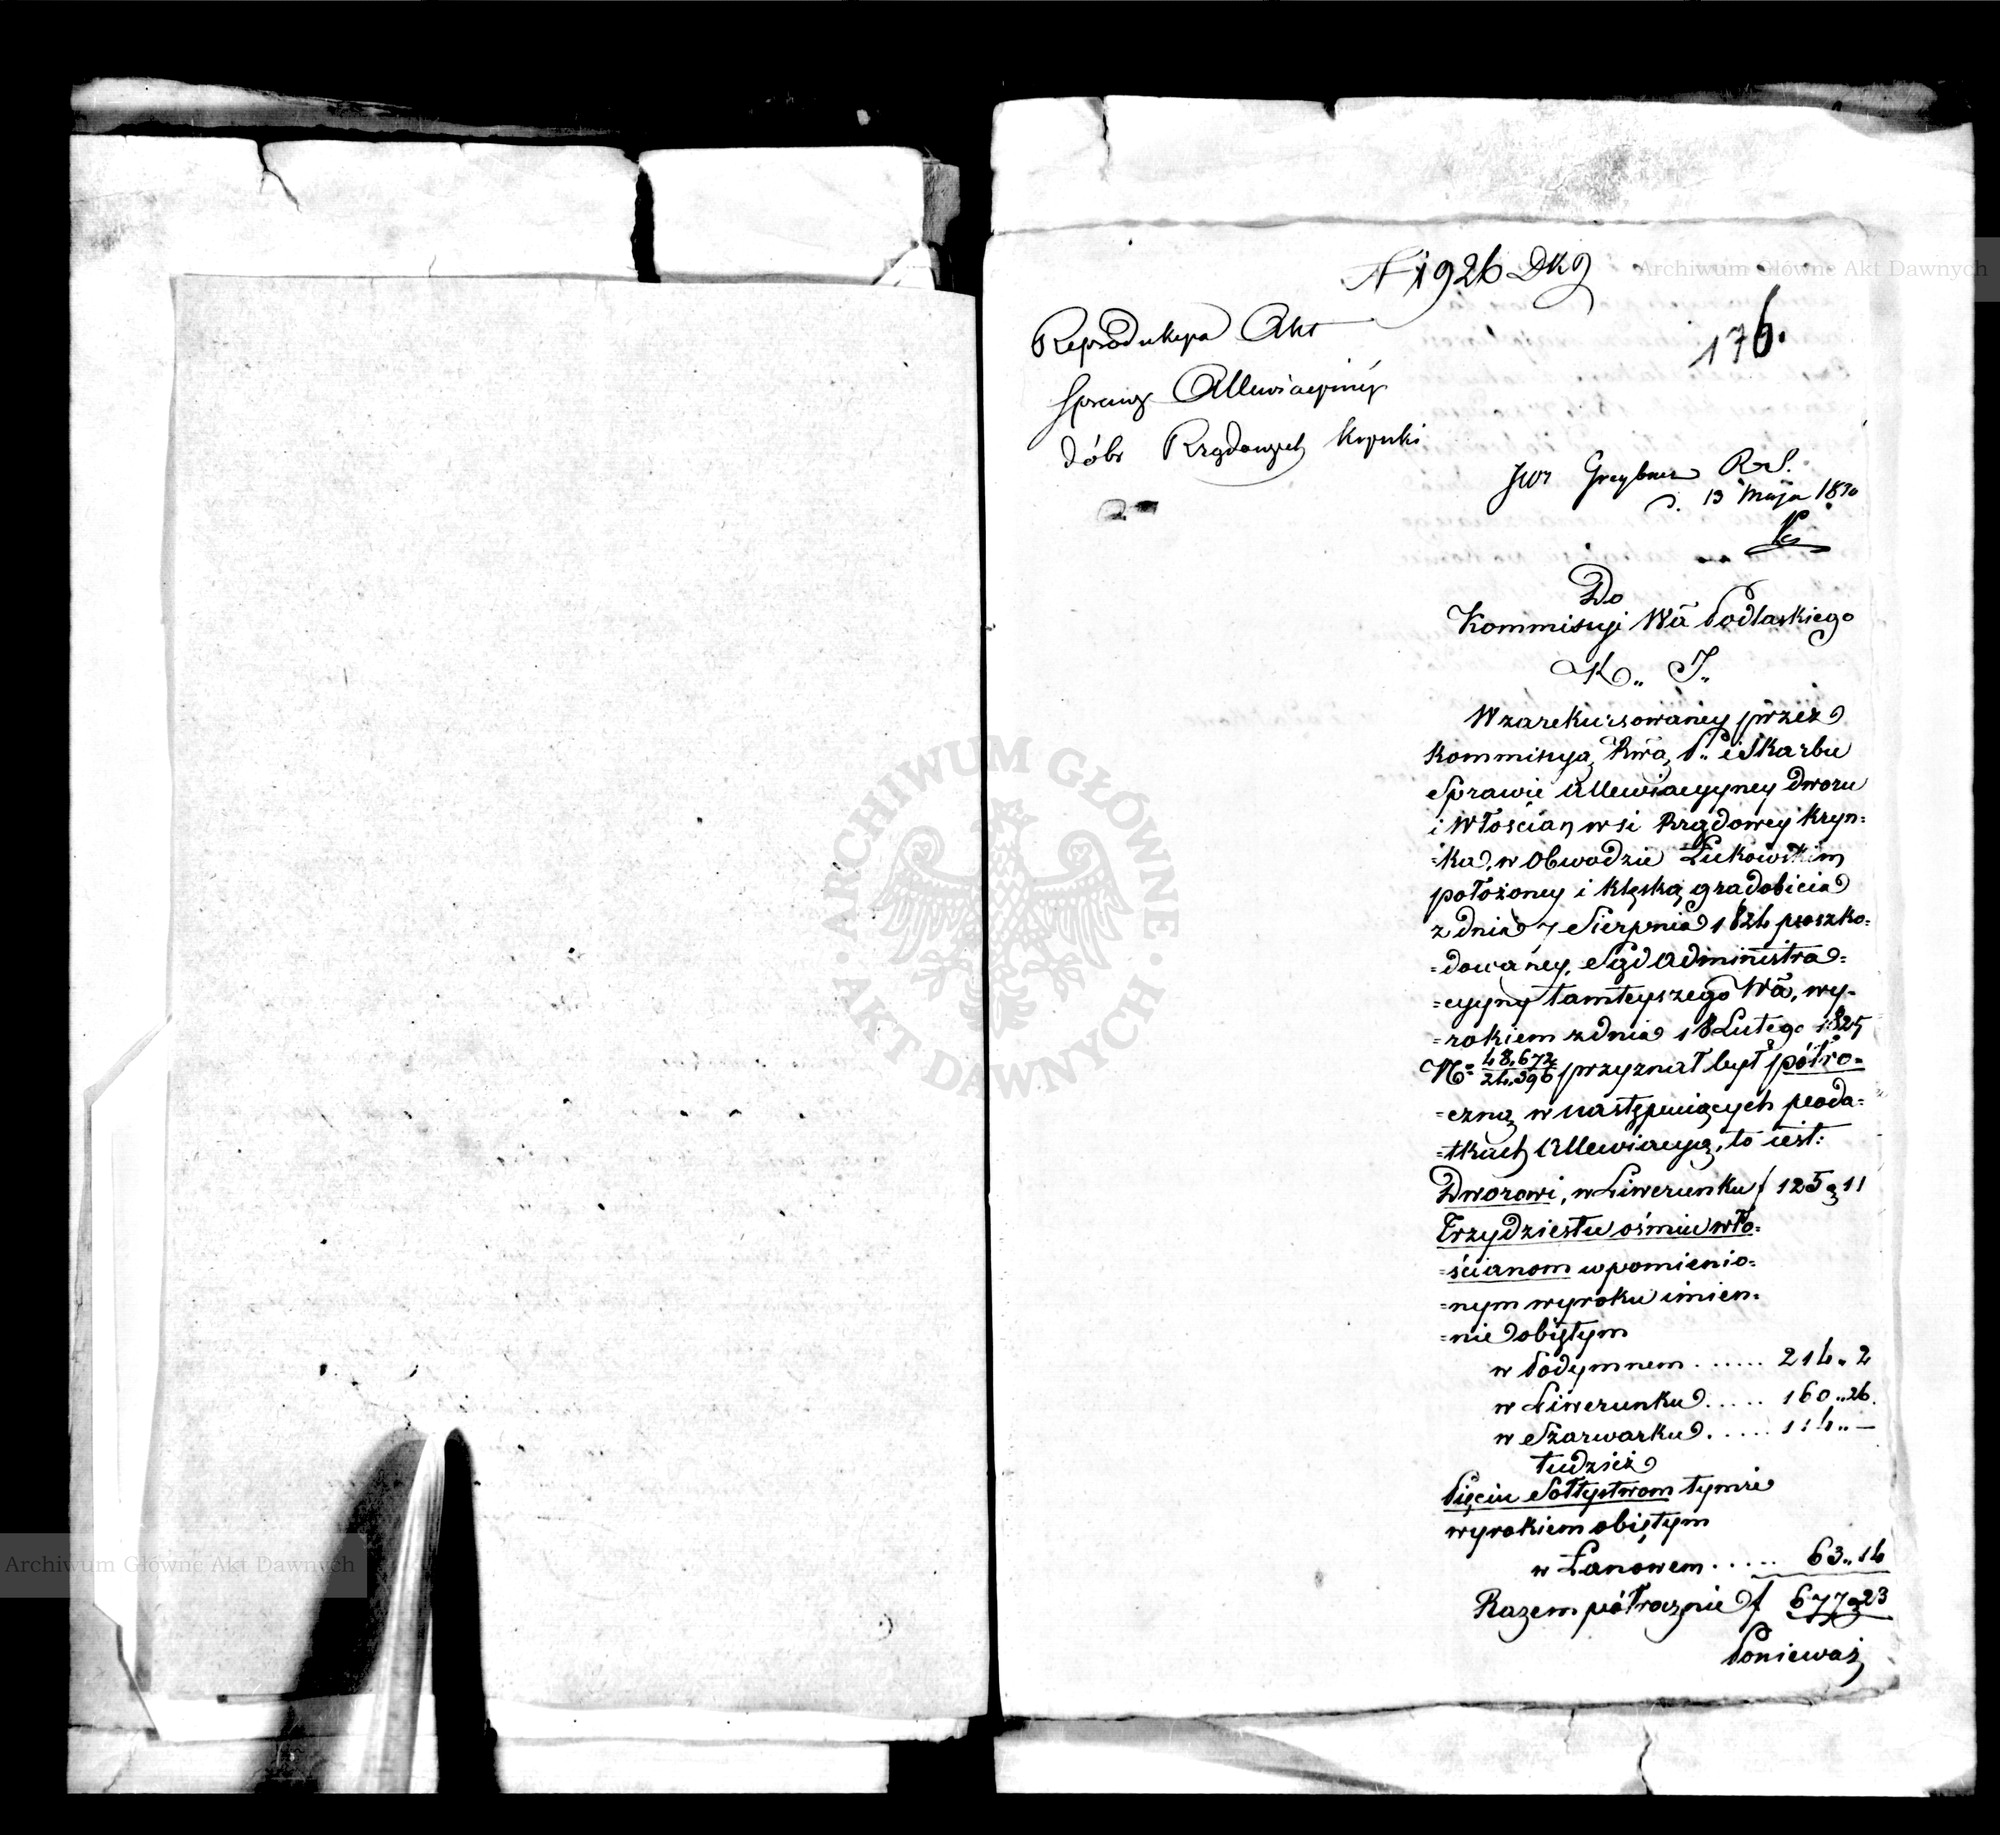 N 1926 DKg
176.
Reprodukcya Akt
sprawy Allewiacyiney
dóbr Rządowych Krynki
JWr Grzybows R. S.
d. 13 Maja 1830
Do
Kommissyi Wa Podlaskiego
K.. J..
W zarekursowaney przez
Kommissyą Rwą P.. i Skarbu
Sprawie Allewiacyyney Dworu
i Włościan wsi Rządowey Kryn=
=ka, w Obwodzie Łukowskim
położoney i klęską gradobicia
z dnia 7 Sierpnia 1824 poszko=
=dowaney, Sąd Administra=
=cyyny tamteyszego Wa, wy=
=rokiem z dnia 18 Lutego 1825
No 48,672/24,396 przyznał był półro=
=czną w następuiących poda=
=tkach Allewiacyą, to iest:
Dworowi, w Liwerunku f 125 g 11
Trzydziestu ośmiu wło=
=ścianom wpomienio=
=nym wyroku imien=
=nie obiętym
w Podymnem ...... 214.. 2
w Liwerunku ..... 160..26.
w Szarwarku ..... 114.. —
tudzież
Pięciu Sołtystwom tymże
wyrokiem obiętym
w Łanowem ..... 63..14
Razem półrocznie f 677 g 23
Ponieważ
Archiwum Główne Akt Dawnych
ARCHIWUM GŁÓWNE
AKT DAWNYCH
Archiwum Główne Akt Dawnych